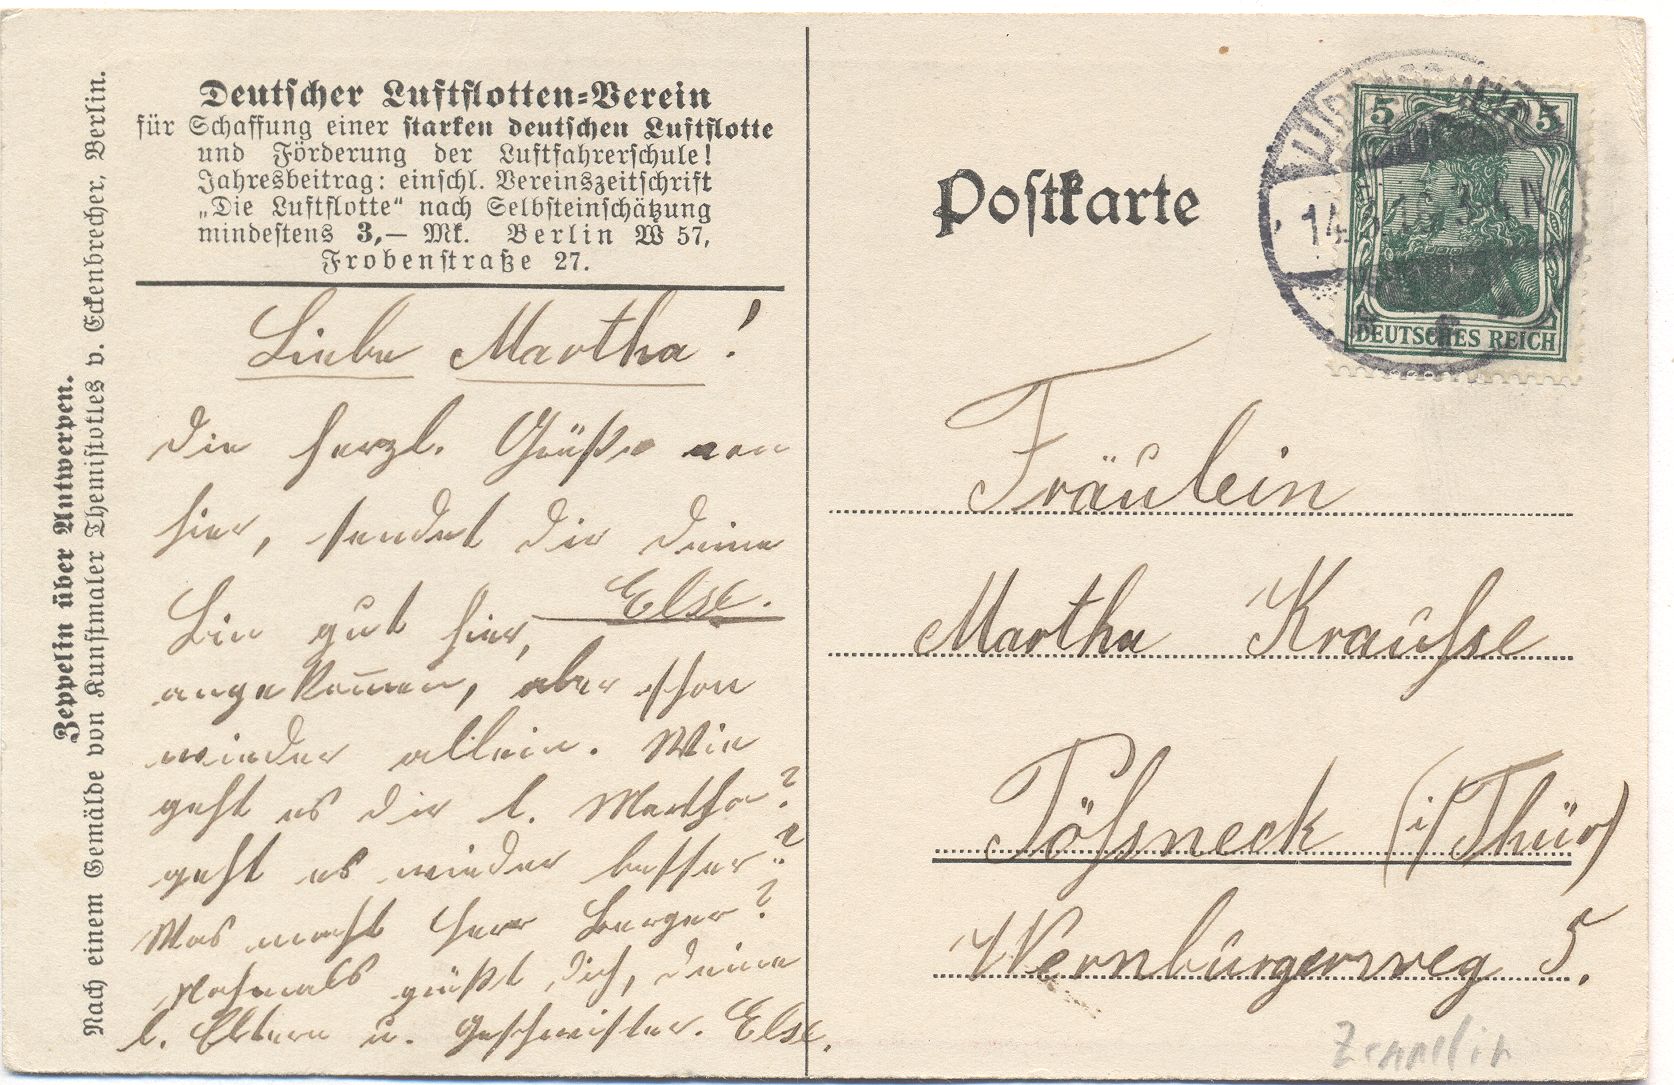 Deutscher Luftflotten-Verein
für Schaffung einer starken deutschen Luftflotte
und Förderung der Luftfahrerschule!
Jahresbeitrag: einschl. Vereinszeitschrift
„Die Luftflotte“ nach Selbsteinschätzung
mindestens 3,— Mk. Berlin W 57,
Frobenstraße 27.
Zeppelin über Antwerpen.
Nach einem Gemälde von Kunstmaler Themistokles v. Eckenbrecher, Berlin.
Liebe Martha!
Die herzl. Grüße von
hier, sendet dir deine
Else.
Bin gut hier,
angekom̅en, aber schon
wieder allein. Wie
geht es dir l. Martha?
geht es wieder besser?
Was macht Herr Berger?
Nochmals grüßt dich, deine
l. Eltern u. Geschwister. Else.
Postkarte
5 5
DEUTSCHES REICH
14. 3-4 N
Fräulein
Martha Krauſse
Pöſsneck (i/Thür)
Wernburgerweg 5.
Zeppelin